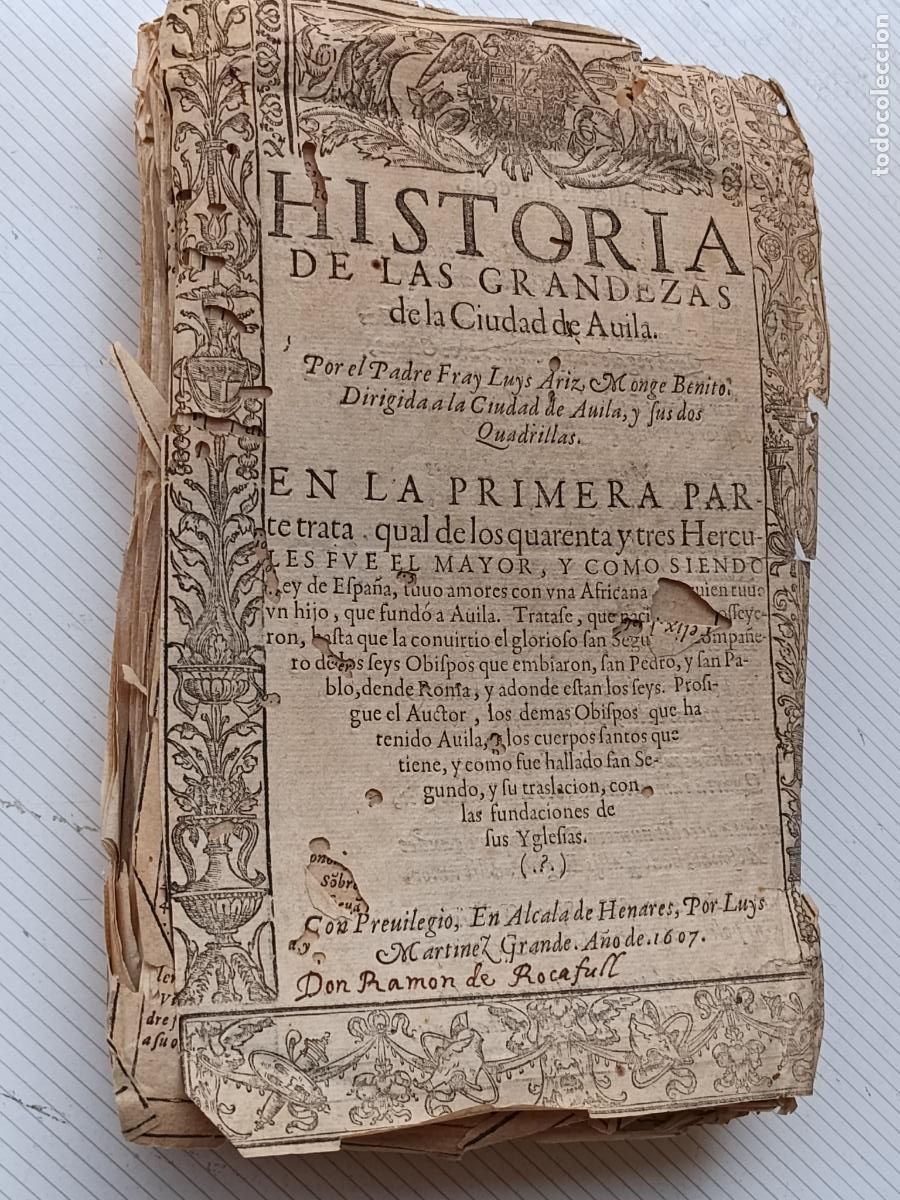 HISTORIA
DE LAS GRANDEZAS
de la Ciudad de Auila.
Por el Padre Fray Luys Ariz, Monge Benito.
Dirigida a la Ciudad de Auila, y ſus dos
Quadrillas.
EN LA PRIMERA PAR-
te trata, qual de los quarenta y tres Hercu-
LES FVE EL MAYOR, Y COMO SIENDO
Rey de Eſpaña, tuuo amores con vna Africana uien tuuo
vn hijo, que fundó a Auila. Trataſe, que naci oſſeye-
ron, haſta que la conuirtio el glorioſo ſan Segu ompañe-
ro de los ſeys Obiſpos que embiaron, ſan Pedro, y ſan Pa-
blo, dende Roma, y adonde eſtan los ſeys. Proſi-
gue el Auctor, los demas Obiſpos que ha
tenido Auila, los cuerpos ſantos que
tiene, y como fue hallado ſan Se-
gundo, y ſu traslacion, con
las fundaciones de
ſus Ygleſias.
(.?.)
Sõbre
Con Preuilegio, En Alcala de Henares, Por Luys
Martinez Grande. Año de. 1607.
Don Ramon de Rocafull
dre
a ſu o
todocoleccion